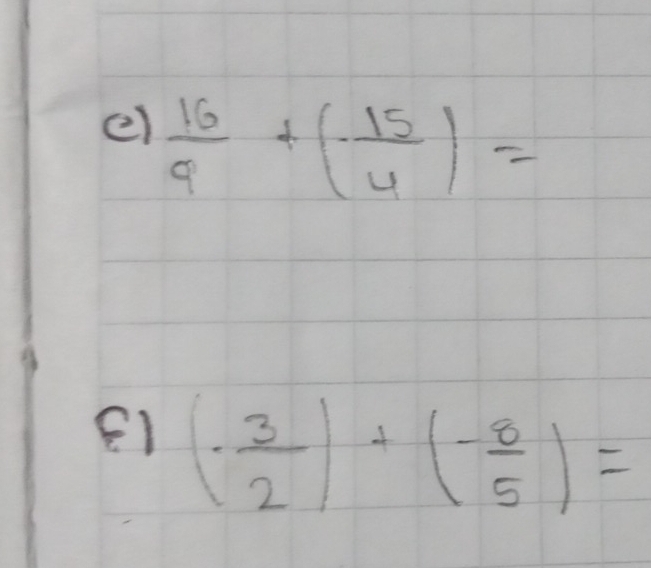 e) 16/9 + (-15/4) =
f) (-3/2) + (-8/5) =